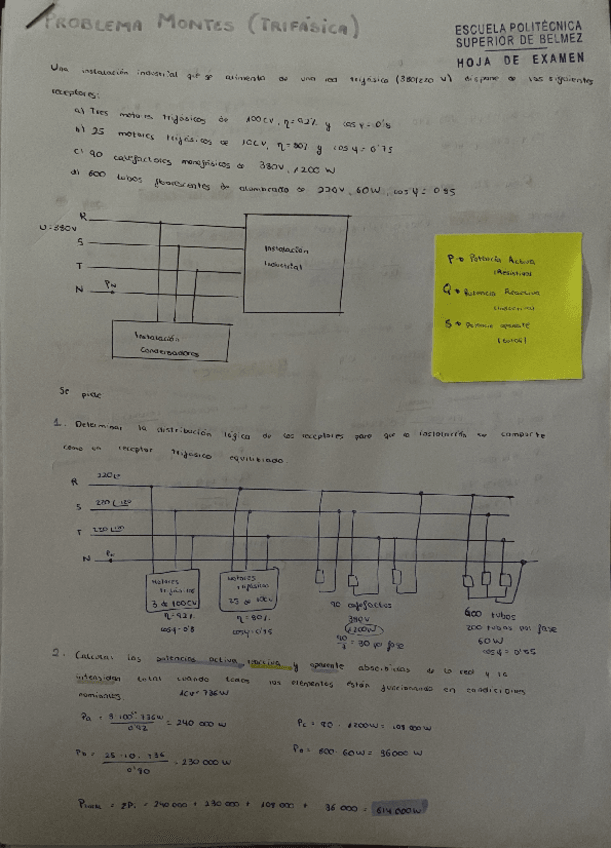 PROBLEMA MONTES (TRIFÁSICA)
ESCUELA POLITÉCNICA
SUPERIOR DE BELMEZ
HOJA DE EXAMEN
Una instalación industrial que se alimenta de una red trifásica (380/220 V) dispone de los siguientes
receptores:
a) Tres motores trifásicos de 100CV, η=92% y cos φ=0'8
b) 25 motores trifásicos de 10CV, η=80% y cos φ=0'75
c) 90 calefactores monofásicos de 380V, 1200 W
d) 600 tubos fluorescentes de alumbrado de 220V, 60W, cos φ=0'55
R
U=380V
S
T
N
PN
Instalación
Industrial
Instalación
Condensadores
P → Potencia Activa
Q → Potencia Reactiva
S → Potencia aparente
Se pide
1. Determinar la distribución lógica de los receptores para que la instalación se comporte
como un receptor trifásico equilibrado.
R
S
T
N
Motores
3 de 100CV
η=92%
cos φ=0'8
Motores
25 de 10CV
η=80%
cos φ=0'75
90 calefact
380V
1200W
90/3 = 30 por fase
600 tubos
200 tubos por fase
60W
cos φ=0'55
2. Calcular las potencias activa, reactiva y aparente absorbidas de la red y la
intensidad total cuando todos los elementos están funcionando en condiciones
nominales.
1CV=736W
= 240 000 W
= 90 · 1200W = 108 000W
25 · 10 · 736
0'80
= 230 000 W
= 600 · 60W = 36000 W
= ΣPi = 240 000 + 230 000 + 108 000 + 36 000 = 614 000W